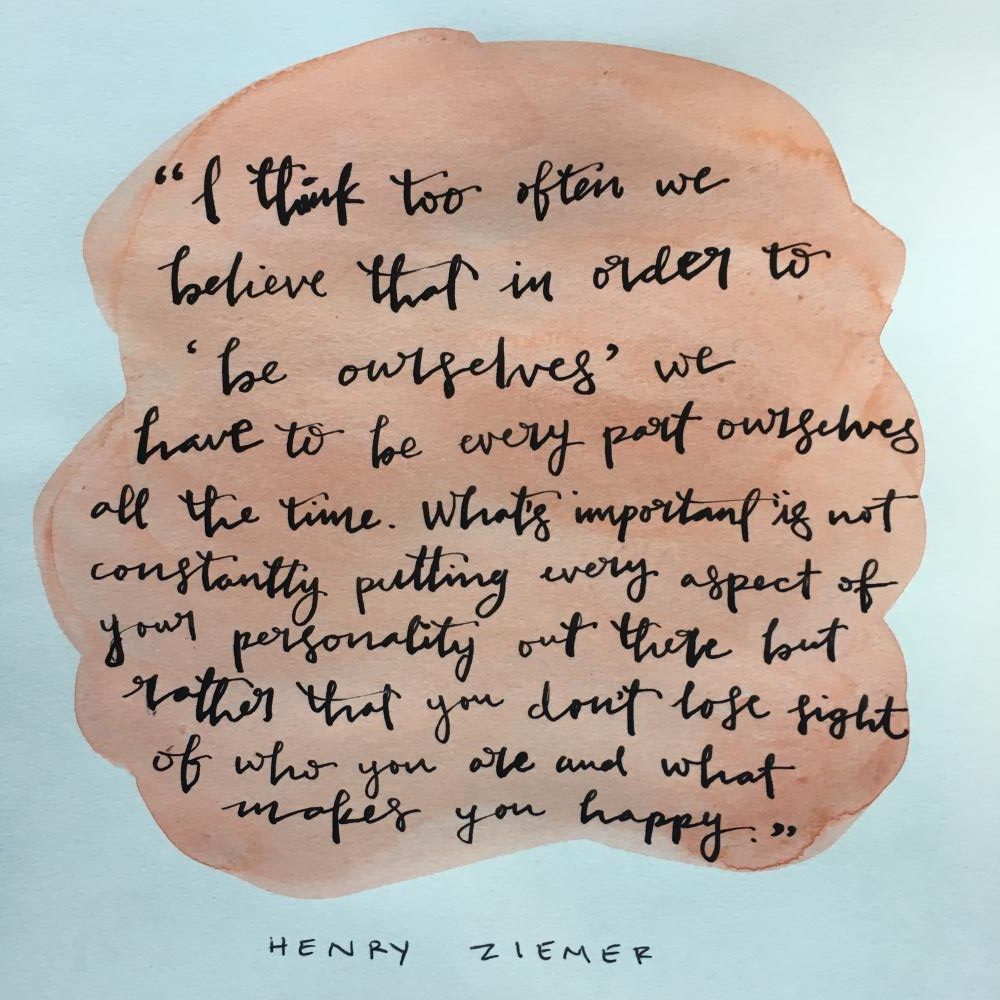 “I think too often we
believe that in order to
‘be ourselves’ we
have to be every part ourselves
all the time. What's important is not
constantly putting every aspect of
your personality out there but
rather that you don't lose sight
of who you are and what
makes you happy.”
HENRY ZIEMER